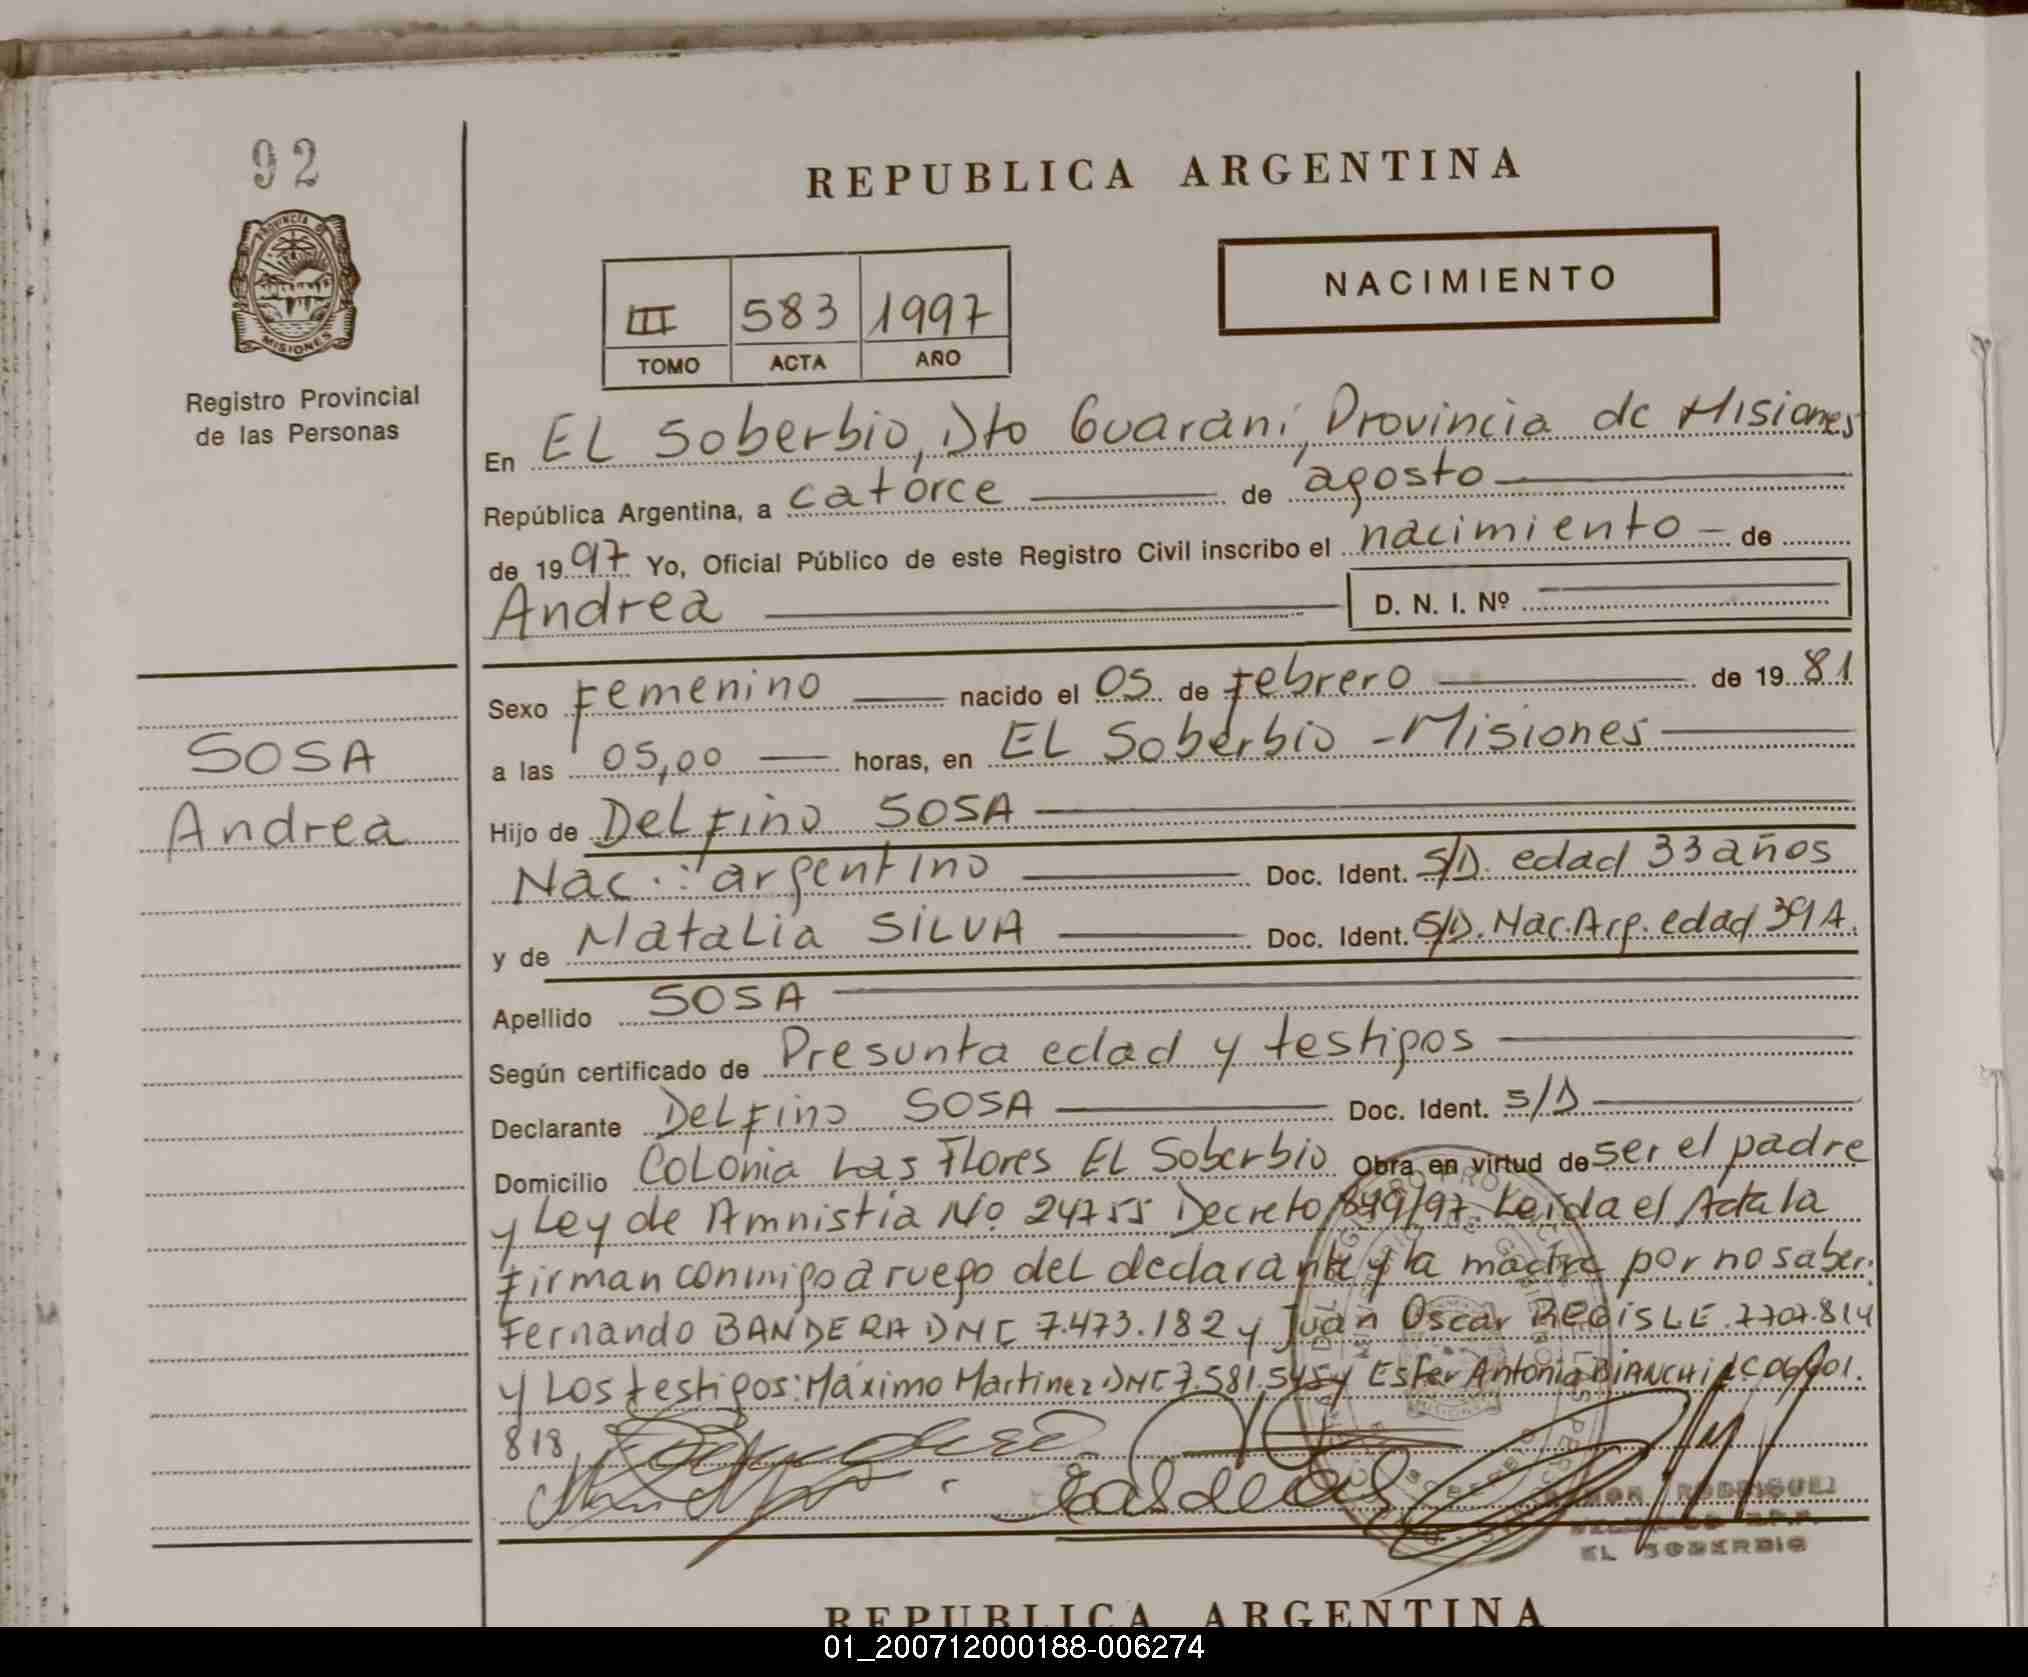 92
REPUBLICA ARGENTINA
PROVINCIA DE
MISIONES
NACIMIENTO
III 583 1997
TOMO ACTA AÑO
Registro Provincial
de las Personas
En EL Soberbio, Dto Guaraní, Provincia de Misiones
República Argentina, a catorce de agosto
de 1997 Yo, Oficial Público de este Registro Civil inscribo el nacimiento - de
Andrea D. N. I. Nº
Sexo Femenino nacido el 05 de Febrero de 1981
SOSA
a las 05,00 horas, en EL Soberbio - Misiones
Andrea
Hijo de DeLFino SOSA
Nac.: argentino Doc. Ident. S/D. edad 33 años
y de NataLia SILVA Doc. Ident. S/D. Nac. Arg. edad 39 A.
Apellido SOSA
Según certificado de Presunta edad y testigos
Declarante DeLFino SOSA Doc. Ident. S/D
Domicilio CoLonia Las Flores EL Soberbio Obra en virtud de ser el padre
y Ley de Amnistía No. 24755 Decreto 849/97. Leída el Acta la
Firman conmigo a ruego deL declarante y la madre por no saber.
Fernando BANDERA DNI 7.473.182 y Juan Oscar 7707.814
y Los testigos: Máximo Martinez DNI 7.581.545 y Ester Antonia BIANCHI LC 06601.
818
RAMON RODRIGUEZ
EL SOBERBIO
REPUBLICA ARGENTINA
01_200712000188-006274